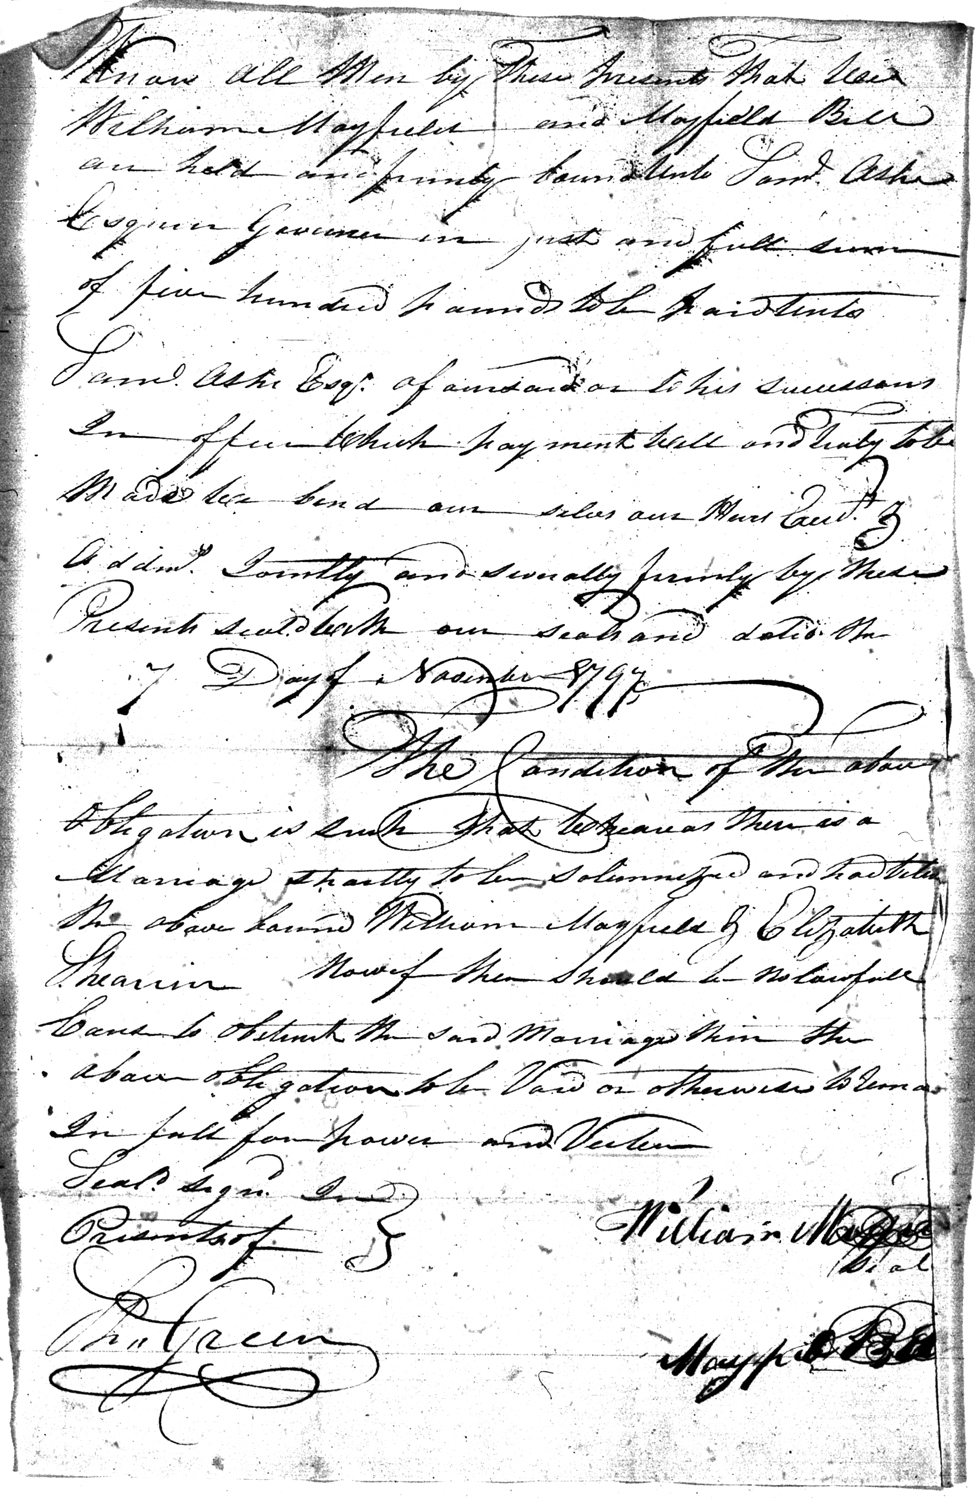 Know all Men by These Presents That wee
William Mayfield and Mayfield Bell
are held and firmly bound unto Samd. Ashe
Esquire Governer in just and full sum
of five hundred pounds to be paid unto
Samd. Ashe Esqr. aforesaid or to his successors
In office which payment well and truly to be
Made we bend our selves our Heirs Exed. &
Addmd. Jointly and severally firmly by these
Presents seald with our seals and dated the
7 Day of November 1797
The Condition of the above
Obligation is such that wheareas there is a
Marriage shortly to be solemnized and had betw
the above bound William Mayfield & Elizabeth
Shearin Now if there should be no lawfull
Caus to obstruct the said Marriage then the
above obligation to be Void or otherwise to rema
In full for power and Vertue
Seald. signd. In
Presents of
William
Seal
Tho. Green
Mayfield Bell